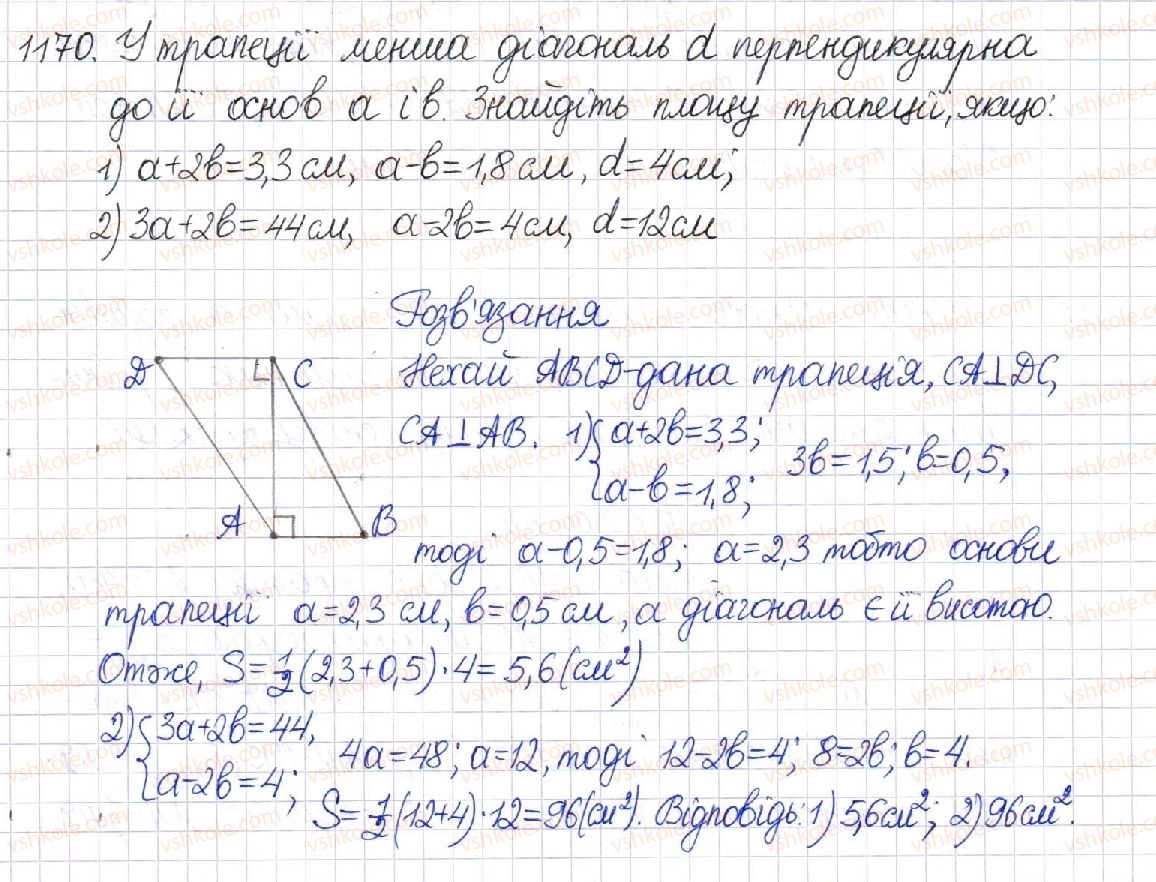 1170. У трапеції менша діагональ d перпендикулярна
до її основ a і b. Знайдіть площу трапеції, якщо:
1) a+2b=3,3 см, a-b=1,8 см, d=4см;
2) 3a+2b=44см, a-2b=4см, d=12см
Розв'язання
D C Нехай ABCD-дана трапеція, CA⊥DC,
CA⊥AB. 1) { a+2b=3,3; a-b=1,8; 3b=1,5; b=0,5,
A B
тоді a-0,5=1,8; a=2,3 тобто основи
трапеції a=2,3 см, b=0,5 см, а діагональ є її висотою.
Отже, S=1/2(2,3+0,5)·4=5,6(см²)
2) { 3a+2b=44, a-2b=4; 4a=48; a=12, тоді 12-2b=4; 8=2b; b=4.
S=1/2(12+4)·12=96(см²). Відповідь: 1) 5,6см²; 2) 96см².